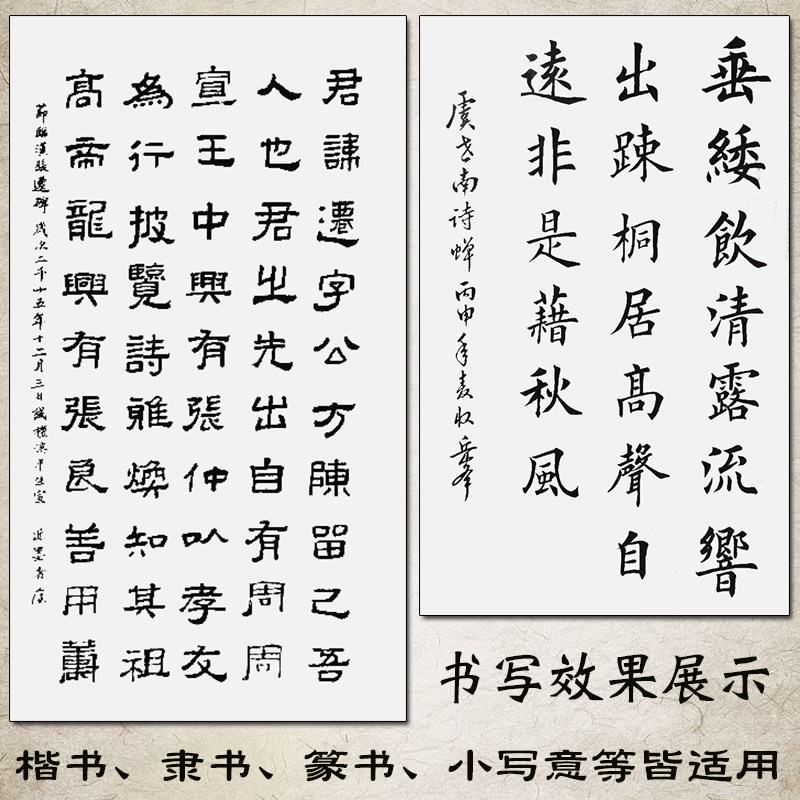 君諱遷字公方陳留己吾
人也君之先出自有周周
宣王中興有張仲以孝友
為行披覽詩雅煥知其祖
高帝龍興有張良善用
節臨漢張遷碑 歲次二千十五年十二月三日
垂緌飲清露流響
出踈桐居高聲自
遠非是藉秋風
虞世南诗蝉丙申年麦收
书写效果展示
楷书、隶书、篆书、小写意等皆适用